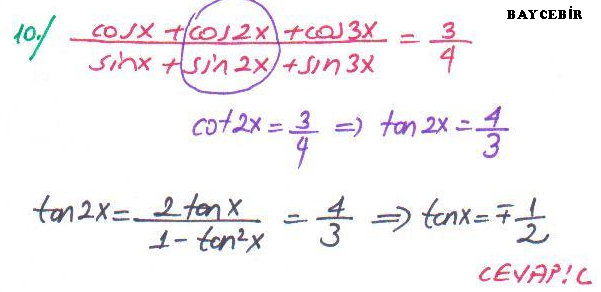 BAYCEBİR
10./ (cosx + cos2x + cos3x) / (sinx + sin2x + sin3x) = 3/4
cot2x = 3/4 => tan2x = 4/3
tan2x = 2tanx / (1 - tan²x) = 4/3 => tanx = ∓1/2
CEVAP!C